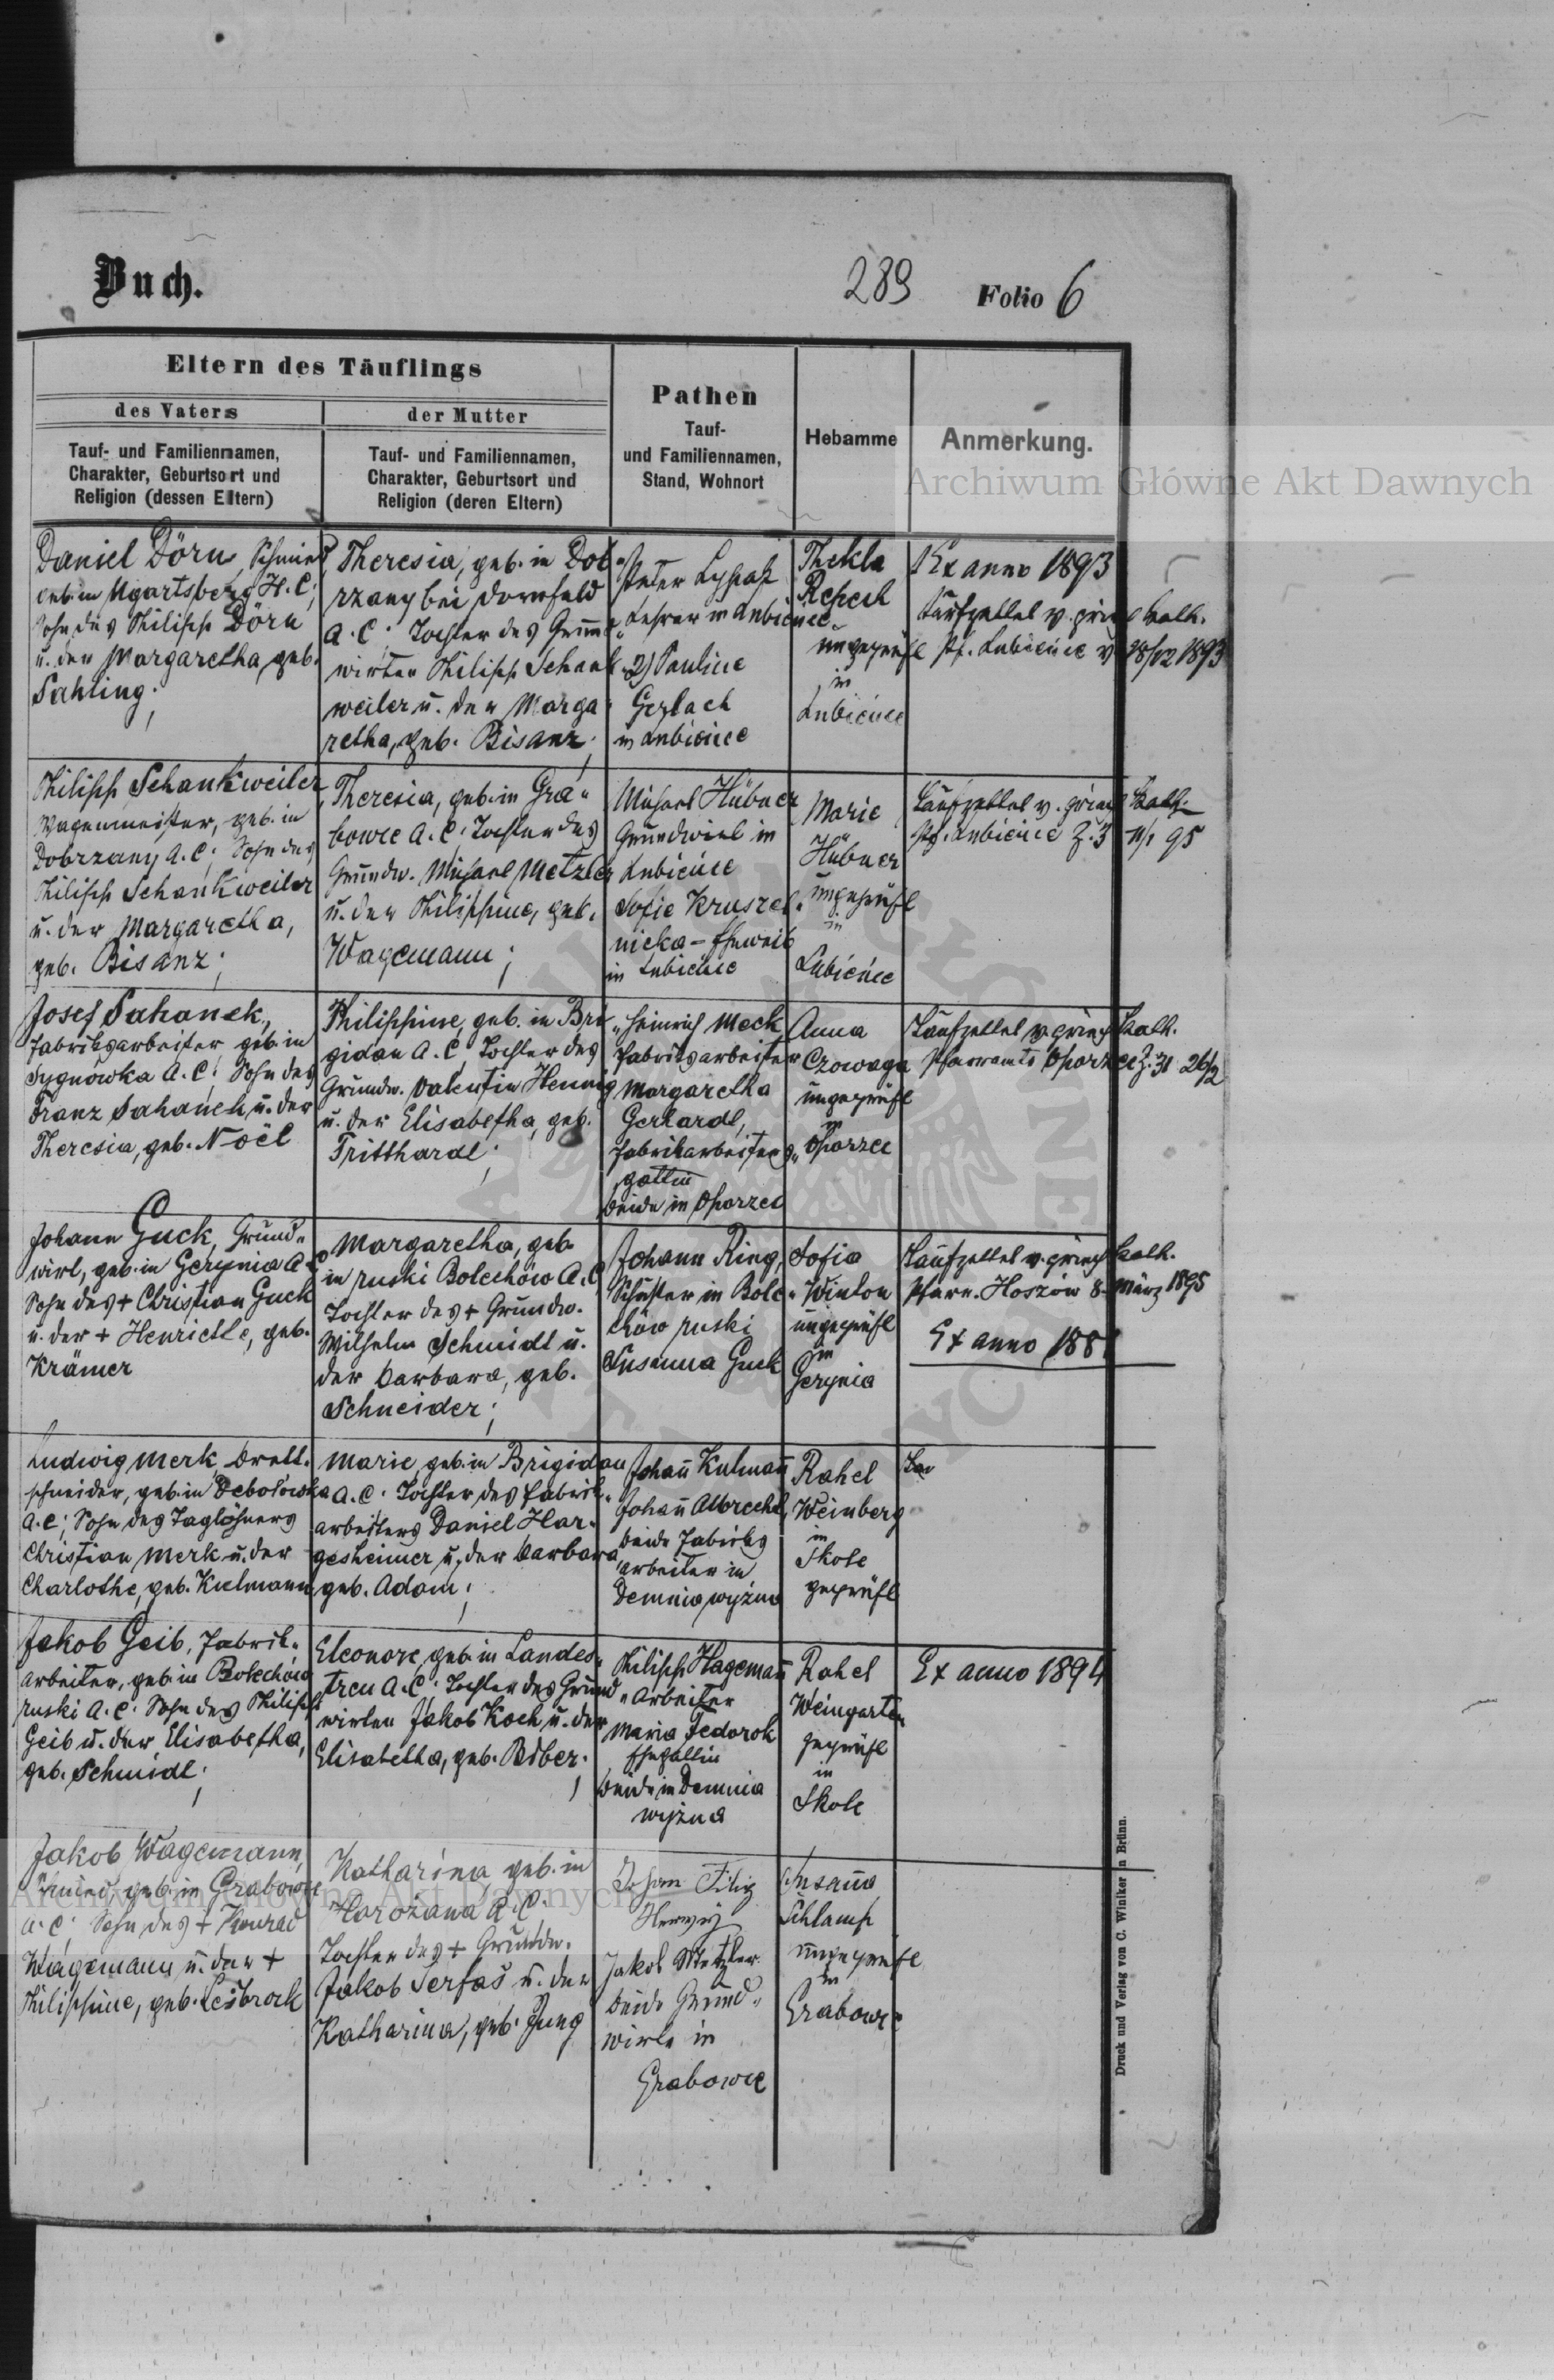 Buch.
289 Folio 6
Eltern des Täuflings
des Vaters
Tauf- und Familiennamen,
Charakter, Geburtsort und
Religion (dessen Eltern)
der Mutter
Tauf- und Familiennamen,
Charakter, Geburtsort und
Religion (deren Eltern)
Pathen
Tauf-
und Familiennamen,
Stand, Wohnort
Hebamme
Anmerkung.
Archiwum Główne Akt Dawnych
Daniel Dörn, Schmied
geb. in Ugartsberg H. C;
Sohn des Philipp Dörn
u. der Margaretha, geb.
Sahling;
Theresia, geb. in Dob„
rzany bei Dornfeld
A. C; Tochter des Grund„
wirten Philipp Schank
weiler u. der Marga
retha, geb. Bisanz;
Peter
Lehrer in Lubieńce
2) Pauline
Gerlach
in Lubieńce
Thekla
ungeprüft
in
Lubieńce
Ex anno 1893
Taufzettel v. griech kath.
Pf. Lubieńce v 28/12 1893
Philipp Schankweiler,
Wagenmeister, geb. in
Dobrzany A. C; Sohn des
Philipp Schankweiler
u. der Margaretha,
geb. Bisanz;
Theresia, geb. in Gra„
bowce A. C; Tochter des
Grundw. Michael Metzler
u. der Philippine, geb.
Wagemann;
Michael Hübner
Grundwirt in
Lubieńce
Sofie Kruszel„
nicka - Eheweib
in Lubieńce
Marie
Hübner
ungeprüft
in
Lubieńce
Taufzettel v. griech kath.
Pf. Lubieńce Z. 3 11/1 95
Josef Sahanek,
Fabriksarbeiter geb. in
Sygnówka A. C; Sohn des
Franz Sahanek u. der
Theresia, geb. Noël
Philippine, geb. in Bri„
gidau A. C, Tochter des
Grundw. Valentin Hennig
u. der Elisabetha, geb.
Tritthardt;
Heinrich Mock
Fabriksarbeiter
Margaretha
Gerhardt,
Fabrikarbeiters„
gattin
beide in Oporzec
Anna
Czowaga
ungeprüft
in
Oporzec
Taufzettel v. griech kath.
Pfarramts Oporzec Z. 31 26/2
Johann Guck, Grund„
wirt, geb. in Gerynia A. C
Sohn des + Christian Guck
u. der + Henriette, geb.
Krämer
Margaretha, geb.
in ruski Bolechów A. C
Tochter des + Grundw.
Wilhelm Schmidt u.
der Barbara, geb.
Schneider;
Johann Ring,
Schuster in Bole„
chów ruski
Susanna Guck
Sofia
Winton
ungeprüft
in
Gerynia
Taufzettel v. griech kath.
Pfarr. Hoszów 8. März 1895
Ex anno 1881
Ludwig Merk Brett„
schneider, geb. in Debolówka
A. C; Sohn des Taglöhners
Christian Merk u. der
Charlothe, geb. Kulmann
Marie, geb. in Brigidau
A. C; Tochter des Fabrik„
arbeiters Daniel Har„
gesheimer u. der Barbara,
geb. Adam;
Johann Kulmann
Johann Albrecht,
beide Fabriks
arbeiter in
Demnia wyżna
Rahel
Weinberg
in
Skole
geprüft
Jakob Geib, Fabrik„
arbeiter, geb. in Bolechów
ruski A. C; Sohn des Philipp
Geib u. der Elisabetha,
geb. Schmidt;
Eleonore, geb. in Landes„
treu A. C; Tochter des Grund„
wirten Jakob Koch u. der
Elisabetha, geb. Biber;
Philipp Hagemann
Arbeiter
Maria Fedorok
Ehegattin
beide in Demnia
wyżna
Rahel
Weingarten
geprüft
in
Skole
Ex anno 1894
Jakob Wagemann,
Schmied, geb. in Grabowce
A. C; Sohn des + Konrad
Wagemann u. der +
Philippine, geb. Leibrock
Katharina geb. in
Horożana A. C.
Tochter des + Grundw.
Jakob Serfas u. der
Katharina, geb. Jung
Johann Filip
Herwig
Jakob Metzler
beide Grund„
wirte in
Grabowce
Susanna
Schlamp
ungeprüft
in
Grabowce
Archiwum Główne Akt Dawnych
Druck und Verlag von C. Winiker in Brünn.